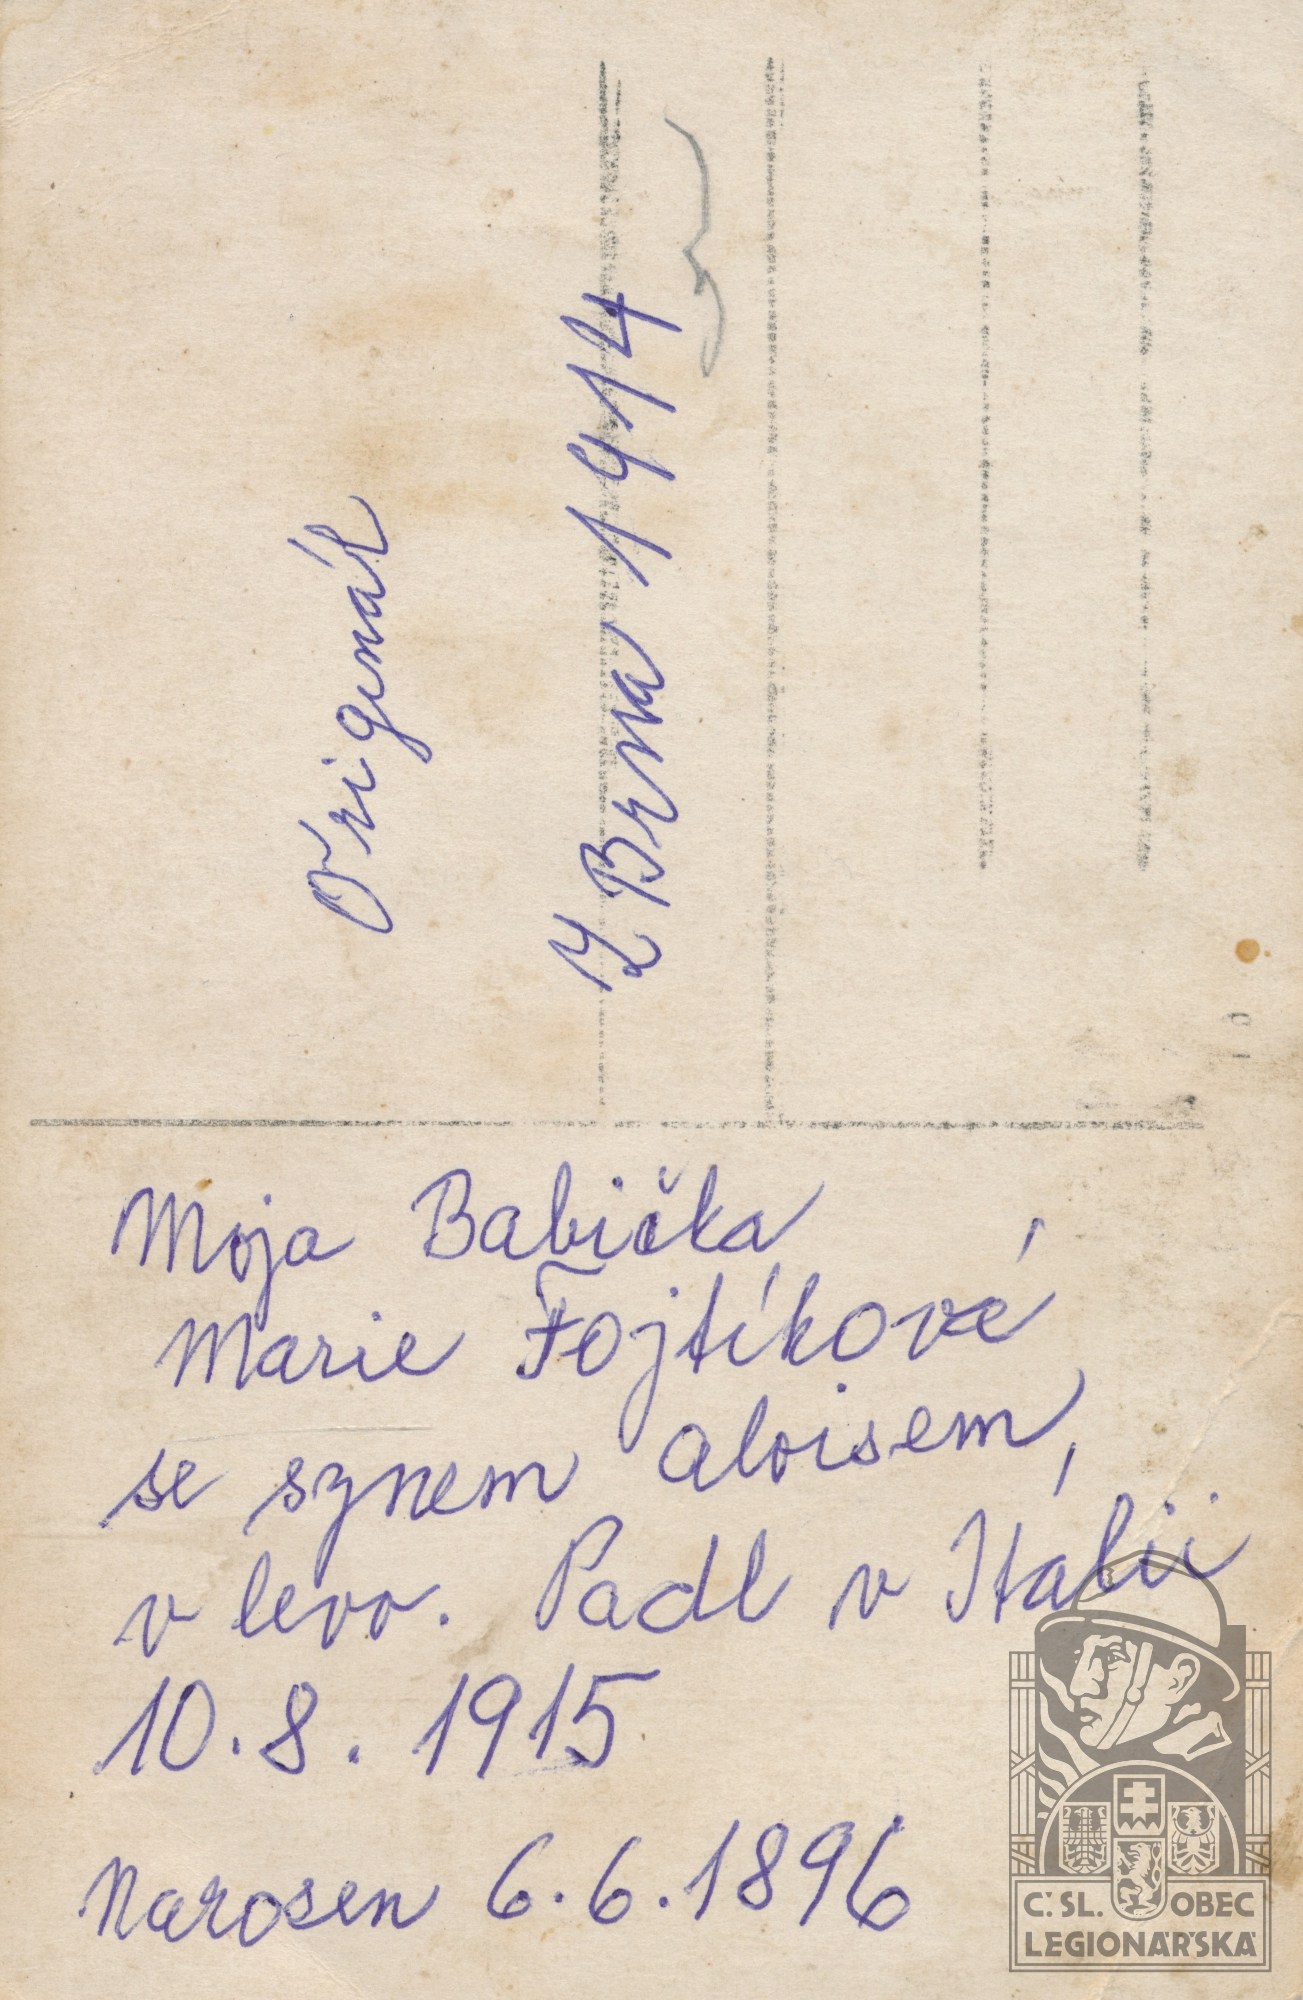 Originál
Z Brna 1914
Moja Babička
Marie Fojtíková
se synem aloisem,
v levo. Padl v Itálii
10.8.1915
Narosen 6.6.1896
Č.SL. OBEC
LEGIONÁŘSKÁ